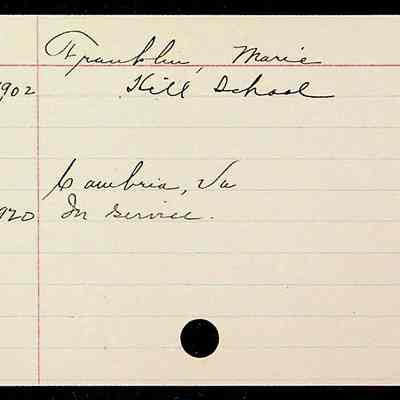 Franklin, Marie
1902 Hill School
Cambria, Va
1920 In service.